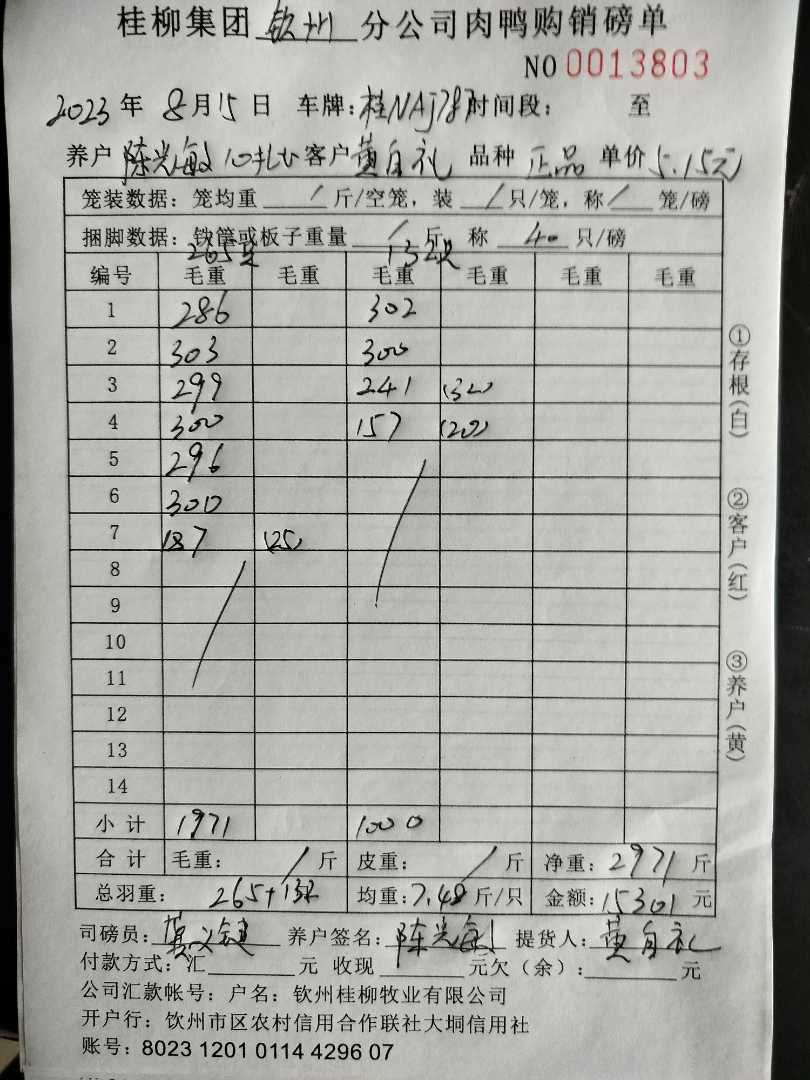 桂柳集团 钦州 分公司肉鸭购销磅单
NO 0013803
2023 年 8 月 15 日 车牌：桂NAJ787 时间段： 至
养户 陈光敏 客户 黄自礼 品种 正品 单价 5.15元
笼装数据：笼均重 / 斤/空笼，装 / 只/笼，称 / 笼/磅
捆脚数据：铁筐或板子重量 / 斤 称 40 只/磅
265只 132只
编号 毛重 毛重 毛重 毛重 毛重 毛重
1 286 302
2 303 300
3 299 241 (32)
4 300 157 (20)
5 296
6 300
7 187 (25)
8
9
10
11
12
13
14
小计 1971 1000
合计 毛重： / 斤 皮重： / 斤 净重：2971 斤
总羽重： 265+132 均重：7.48 斤/只 金额：15301 元
司磅员： 养户签名：陈光敏 提货人：黄自礼
付款方式：汇 元 收现 元欠（余）： 元
公司汇款帐号：户名：钦州桂柳牧业有限公司
开户行：钦州市区农村信用合作联社大垌信用社
账号：8023 1201 0114 4296 07
①存根（白）
②客户（红）
③养户（黄）